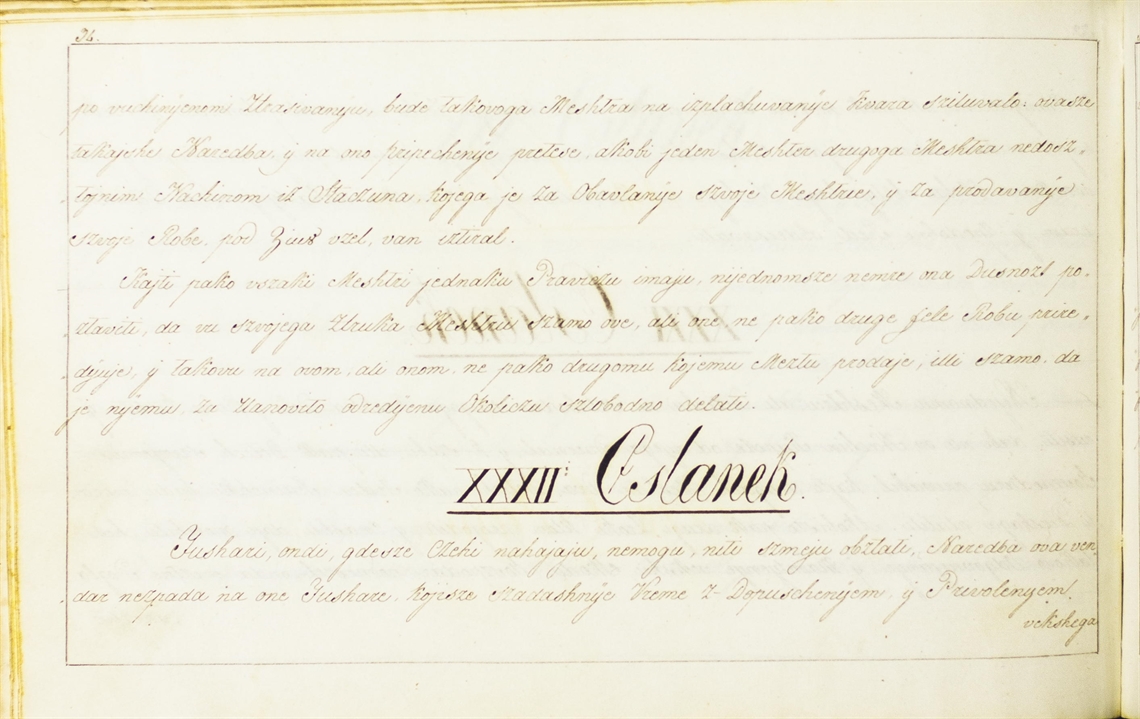 94.
po vuchinyenom Ztrasivanyu, bude takovoga Meshtra na izplachuvanye Kvara sziluvalo: ovasze
takajshe Naredba, y na ono pripechenye pretese, akobi jeden Meshter drugoga Meshtra nedosz-
tojnim Nachinom iz Staczuna, kojega je za Obavlanye szvoje Meshtrie, y za prodavanye
szvoje Robe, pod Zins vzel, van ztiral.
Kajti pako vszaki Meshtri jednaku Praviczu imaju, nijednomsze nemre ona Dusnozt po-
ztaviti, da vu szvojega Ztruka Meshtriu szamo ove, ali one ne pako druge fele Robu prire-
dyuje, y takovu na ovom, ali onom, ne pako drugomu kojemu Mesztu prodaje, ili szamo da
je nyemu za Ztanovito odredyenu Okoliczu szlobodno delati.
XXXII: Cslanek.
Jushari, ondi, gdesze Czehi nahajaju, nemogu, niti szmeju obztati, Naredba ova ven-
dar nezpada na one Jushare, kojisze szadashnye Vreme z-Dopuschenyem, y Privolenyem
vekshega